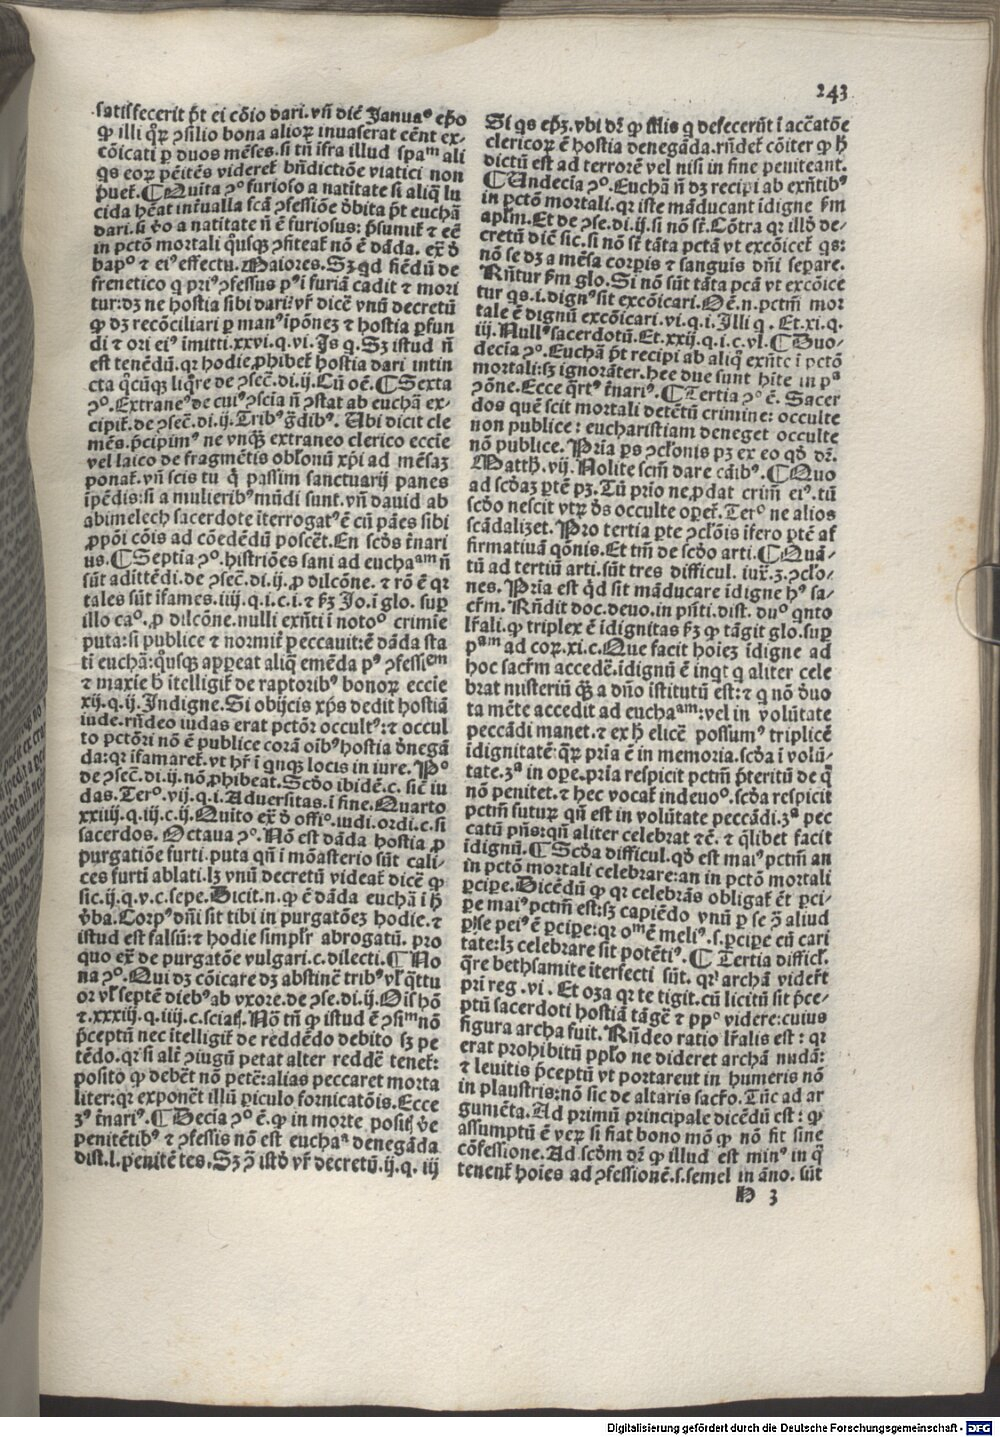 243
satisfecerit p̄t ei cōio dari. vñ dic̄ Januaꝰ ep̄o
ꝙ illi q̄ꝝ ꝯsilio bona alioꝝ inuaserat eēnt ex⸗
cōicati ꝑ duos mēses. si tñ īfra illud spaᵐ ali
qs eoꝝ pēitēs videret̄ bñdictiōe viatici non
ꝓuet̄. ¶Quīta ꝯᵒ furioso a natītate si aliq̄ lu
cida hēat int̄ualla scā ꝯfessiōe d̄bita p̄t euchā
dari. si v̄o a natitate ñ ē furiosus: p̄sumit̄ ⁊ eē
in pctō mortali q̄usqꝫ ꝯfiteat̄ nō ē dāda. ex̄ d̄
bapᵒ ⁊ eiꝰ effectu. Maiores. Sꝫ qd fiēdū de
frenetico q priꝰ ꝯfessus pꝰ ī furiā cadit ⁊ mori
tur: dꝫ ne hostia sibi dari? vr̄ dicē vnū decretū
ꝙ dꝫ recōciliari ꝑ manꝰ īpōneꝫ ⁊ hostia ꝑfun
di ⁊ ori eiꝰ īmitti. xxvi. q. vi. Is q. Sꝫ istud ñ
est tenēdū. qr hodie ꝓhibet̄ hostia dari intin
cta q̄cūqꝫ liq̄re de ꝯsec̄. di. ij. Cū oē. ¶Sexta
ꝯᵒ. Extraneꝰ de cuiꝰ ꝯscia ñ ꝯstat ab euchā ex⸗
cipit̄. de ꝯsec̄. di. ij. Tribꝰ ḡdibꝰ. Ubi dicit cle
mēs. p̄cipimꝰ ne vnqꝫ extraneo clerico eccīe
vel laico de fragmētis obl̄onū xp̄i ad mēsaꝫ
ponat̄. vñ scis tu q̄ passim sanctuarij panes
īpēdis: si a mulieribꝰ mūdi sunt. vñ dauid ab
abimelech sacerdote īterrogatꝰ ē cū pāes sibi
ꝓpōi cōis ad cōedēdū poscēt. En scd̄s t̄nari
us. ¶Septīa ꝯᵒ. histriōes sani ad euchaᵃᵐ ñ
sūt adittēdi. de ꝯsec̄. di. ij. ꝓ dilcōne. ⁊ rō ē qr
tales sūt īfames. iiij. q. i. c. i. ⁊ ẜꝫ Jo. ī glo. suꝑ
illo caᵒ. ꝓ dilcōne. nulli exn̄ti ī notoᵒ crimīe
puta: si publice ⁊ normit̄ peccauit: ē dāda sta
ti euchā: q̄usqꝫ apꝑeat aliq̄ emēda pꝰ ꝯfessiᵉᵐ
⁊ maxīe h̄ ītelligit̄ de raptoribꝰ bonoꝝ eccīe
xij. q. ij. Indigne. Si obijcis xp̄s dedit hostiā
iude. rn̄deo iudas erat pctōr occultꝰ: ⁊ occul
to pctōri nō ē publice corā oībꝰ hostia d̄negā
da: qr īfamaret̄. vt hr̄ ī q̄nqꝫ locis in iure. Pᵒ
de ꝯsec̄. di. ij. nō ꝓhibeat. Scd̄o ibidē. c. sic̄ iu
das. Terᵒ. vij. q. i. Aduersitas. ī fine. Quarto
xxiij. q. iij. c. ij. Quīto ex̄ d̄ offiᵒ. iudi. ordi. c. si
sacerdos. Octaua ꝯᵒ. Nō est dāda hostia ꝓ
purgatiōe furti. puta qñ ī mōasterio sūt cali⸗
ces furti ablati. lꝫ vnū decretū videat̄ dicē ꝙ
sic. ij. q. v. c. sepe. Dicit. n. ꝙ ē dāda euchā ī h̄
v̄ba. Corpꝰ dn̄i sit tibi in purgatōeꝫ hodie. ⁊
istud est falsū: ⁊ hodie simpl̄r abrogatū. pro
quo ex̄ de purgatōe vulgari. c. dilecti. ¶No
na ꝯᵒ. Qui dꝫ cōicare dꝫ abstinē tribꝰ vl̄ q̄ttu
or vl̄ septē diebꝰ ab vxore. de ꝯse. di. ij. Ois hō
⁊. xxxiij. q. iiij. c. sciatꝭ. Nō tñ ꝙ istud ē ꝯsiᵐ nō
p̄ceptū nec ītelligit̄ de reddēdo debito sꝫ pe
tēdo. qr si alt̄ ꝯiugū petat alter reddē tenet̄:
posito ꝙ debēt nō petē: alias peccaret morta
liter: qr exponēt illū ꝑiculo fornicatōis. Ecce
3ꝰ t̄nariꝰ. ¶Decīa ꝯᵒ ē. ꝙ in morte positꝭ v̄e
penitētibꝰ ⁊ ꝯfessis nō est euchaᵃ denegāda
dist. l. penitē tes. Sꝫ ꝯ̄ istd̄ vr̄ decretū. ij. q. iij
Si qs ep̄ꝫ. vbi dr̄ ꝙ illis q defecerūt ī accatōe
clericoꝝ ē hostia denegāda. rn̄det̄ cōiter ꝙ h̄
dictū est ad terrorē vel nisi in fine peniteant.
¶Undecīa ꝯᵒ. Euchā ñ dꝫ recipi ab exn̄tibꝰ
in pctō mortali. qr iste māducant īdigne ẜm
apl̄m. Et de ꝯse. di. ij. si nō st̄. Cōtra qr illd̄ de⸗
cretū dic̄ sic. si nō st̄ tāta pctā vt excōicet̄ qs:
nō se dꝫ a mēsa corꝑis ⁊ sanguīs dn̄i separe.
Rn̄tur ẜm glo. Si nō sūt tāta pcā vt excōice
tur qs. i. dignꝰ sit excōicari. Oē. n. pctm̄ mor
tale ē dignū excōicari. vi. q. i. Illi q. Et. xi. q.
iij. Nullꝰ sacerdotū. Et. xxij. q. i. c. vl. ¶Duo⸗
decīa ꝯᵒ. Euchā p̄t recipi ab aliq̄ exn̄te ī pctō
mortali: sꝫ ignorāter. hee due sunt hīte in pᵃ
ꝯōne. Ecce q̄rtꝰ t̄nariꝰ. ¶Tertia ꝯᵒ ē. Sacer
dos quē scit mortali detētū crimine: occulte
non publice: eucharistiam deneget occulte
nō publice. Prīa ps ꝯclonis pꝫ ex eo qd̄ dr̄.
Matth. vij. Nolite scm̄ dare cāibꝰ. ¶Quo
ad scd̄aꝫ ꝑtē pꝫ. Tū prio ne ꝓdat crim̄ eiꝰ. tū
scd̄o nescit vtꝝ d̄s occulte opet̄. Terᵒ ne alios
scādalizet. Pro tertia ꝑte ꝯclōis īfero ꝑtē af
firmatiuā qōnis. Et tm̄ de scd̄o arti. ¶Quā⸗
tū ad tertiū arti. sūt tres difficul. iux̄. 3. ꝯclo⸗
nes. Prīa est qd̄ sit māducare īdigne hꝰ sa⸗
cr̄m. Rn̄dit doc. deuo. in pn̄ti. dist. duᵒ qnto
lr̄ali. ꝙ triplex ē īdignitas ẜꝫ ꝙ tāgit glo. suꝑ
pᵃᵐ ad coꝝ. xi. c. Que facit hoieꝫ īdigne ad
hoc sacr̄m accedē. īdignū ē inqt q aliter cele
brat misteriū qꝫ a dn̄o īstitutū est: ⁊ q nō d̄uo
ta mēte accedit ad euchaᵃᵐ: vel in volūtate
peccādi manet. ⁊ ex h̄ elicē possumꝰ triplicē
īdignitatē: q̄ꝝ prīa ē in memoria. scd̄a ī volū⸗
tate. 3ᵃ in ope. prīa respicit pctm̄ p̄teritū de q̄
nō penitet. ⁊ hec vocat̄ indeuoᵒ. scd̄a respicit
pctm̄ futuꝝ qñ est in volūtate peccādi. 3ᵃ pec
catū pn̄s: qñ aliter celebrat ⁊ē. ⁊ q̄libet facit
īdignū. ¶Scd̄a difficul. qd̄ est maiꝰ pctm̄ an
in pctō mortali celebrare: an in pctō mortali
ꝑcipe. Dicēdū ꝙ qr celebrās obligat̄ ēt ꝑci⸗
pe maiꝰ pctm̄ est: sꝫ capiēdo vnū ꝑ se ꝯ̄ aliud
ꝑ se peiꝰ ē ꝑcipe: qr oᵐ ē meliꝰ. s. ꝑcipe cū cari
tate: lꝫ celebrare sit potētiꝰ. ¶Tertia difficl̄.
q̄re bethsamite īterfecti sūt. qr archā viderūt
pri reg. vi. Et oza qr te tigit. cū licitū sit p̄ce⸗
ptū sacerdoti hostiā tāgē ⁊ ppᵒ videre: cuius
figura archa fuit. Rn̄deo ratio lr̄alis est: qr
erat prohibitū pplo ne dideret archā nudā:
⁊ leuitis p̄ceptū vt portarent in humeris nō
in plaustris: nō sic de altaris sacr̄o. Tūc ad ar
gumēta. Ad primū principale dicēdū est: ꝙ
assumptū ē veꝝ si fiat bono mō ꝙ nō fit sine
cōfessione. Ad scd̄m dr̄ ꝙ illud est minꝰ in q̄
tenent̄ hoies ad ꝯfessionē. s. semel in āno. sūt
H 3
Digitalisierung gefördert durch die Deutsche Forschungsgemeinschaft - DFG